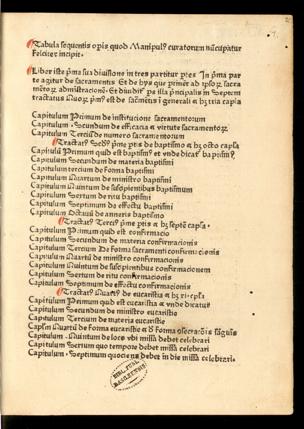 Tabula sequentis opis quod Manipulꝰ curatorum nūcupatur
Feliciter incipit.
Liber iste pma sua diuisione in tres partitur ptes In pma parte
agitur de sacramentis Et de hys que
administracionē Et diuidit illa pncipalis in Septem
tractatus est de in generali
Capitulum Primum de institucione sacramentorum
Capitulum Secundum de efficacia et virtute sacramentorum
Capitulum Terciū de numero sacramentorum
Tractatꝰ ptis de baptismo et hꝫ octo capla
Capitulū Primum quid est baptismꝰ et vnde dicatꝰ baptismꝰ
Capitulum Secundum de materia baptismi
Capitulum tercium de forma baptismi
Capitulum Quartum de ministro baptismi
Capitulum Quintum de suscipientibus baptismum
Capitulum Sextum de ritu baptismi
Capitulum Septimum de effectu baptismi
Capitulum Octauū de annexis baptismo
Tractatꝰ Terciꝰ pme ptis et hꝫ septē capla
Capitulum Primum quid est confirmacio
Capitulum Secundum de materia confirmacionis
Capitulum Tercium De forma sacramenti confirmacionis
Capitulum Quartū de ministro confirmacionis
Capitulum Quintum de suscipientibus confirmacionem
Capitulum Sextum de ritu confirmacionis
Capitulum Septimum de effectu confirmacionis
Tractatꝰ Quartꝰ de eucaristia et hꝫ capla
Capitulum Primum quid est eucaristia et vnde dicatur
Capitulum Secundum de ministro eucaristie
Capitulum Tercium de materia eucaristie
Caplm Quartū de forma eucaristie et
Capitulum Quintum de loco vbi missa debet celebrari
Capitulum Sextum quo tempore debet missa celebrari
Capitulum Septimum quociens debet in die missa celebrari